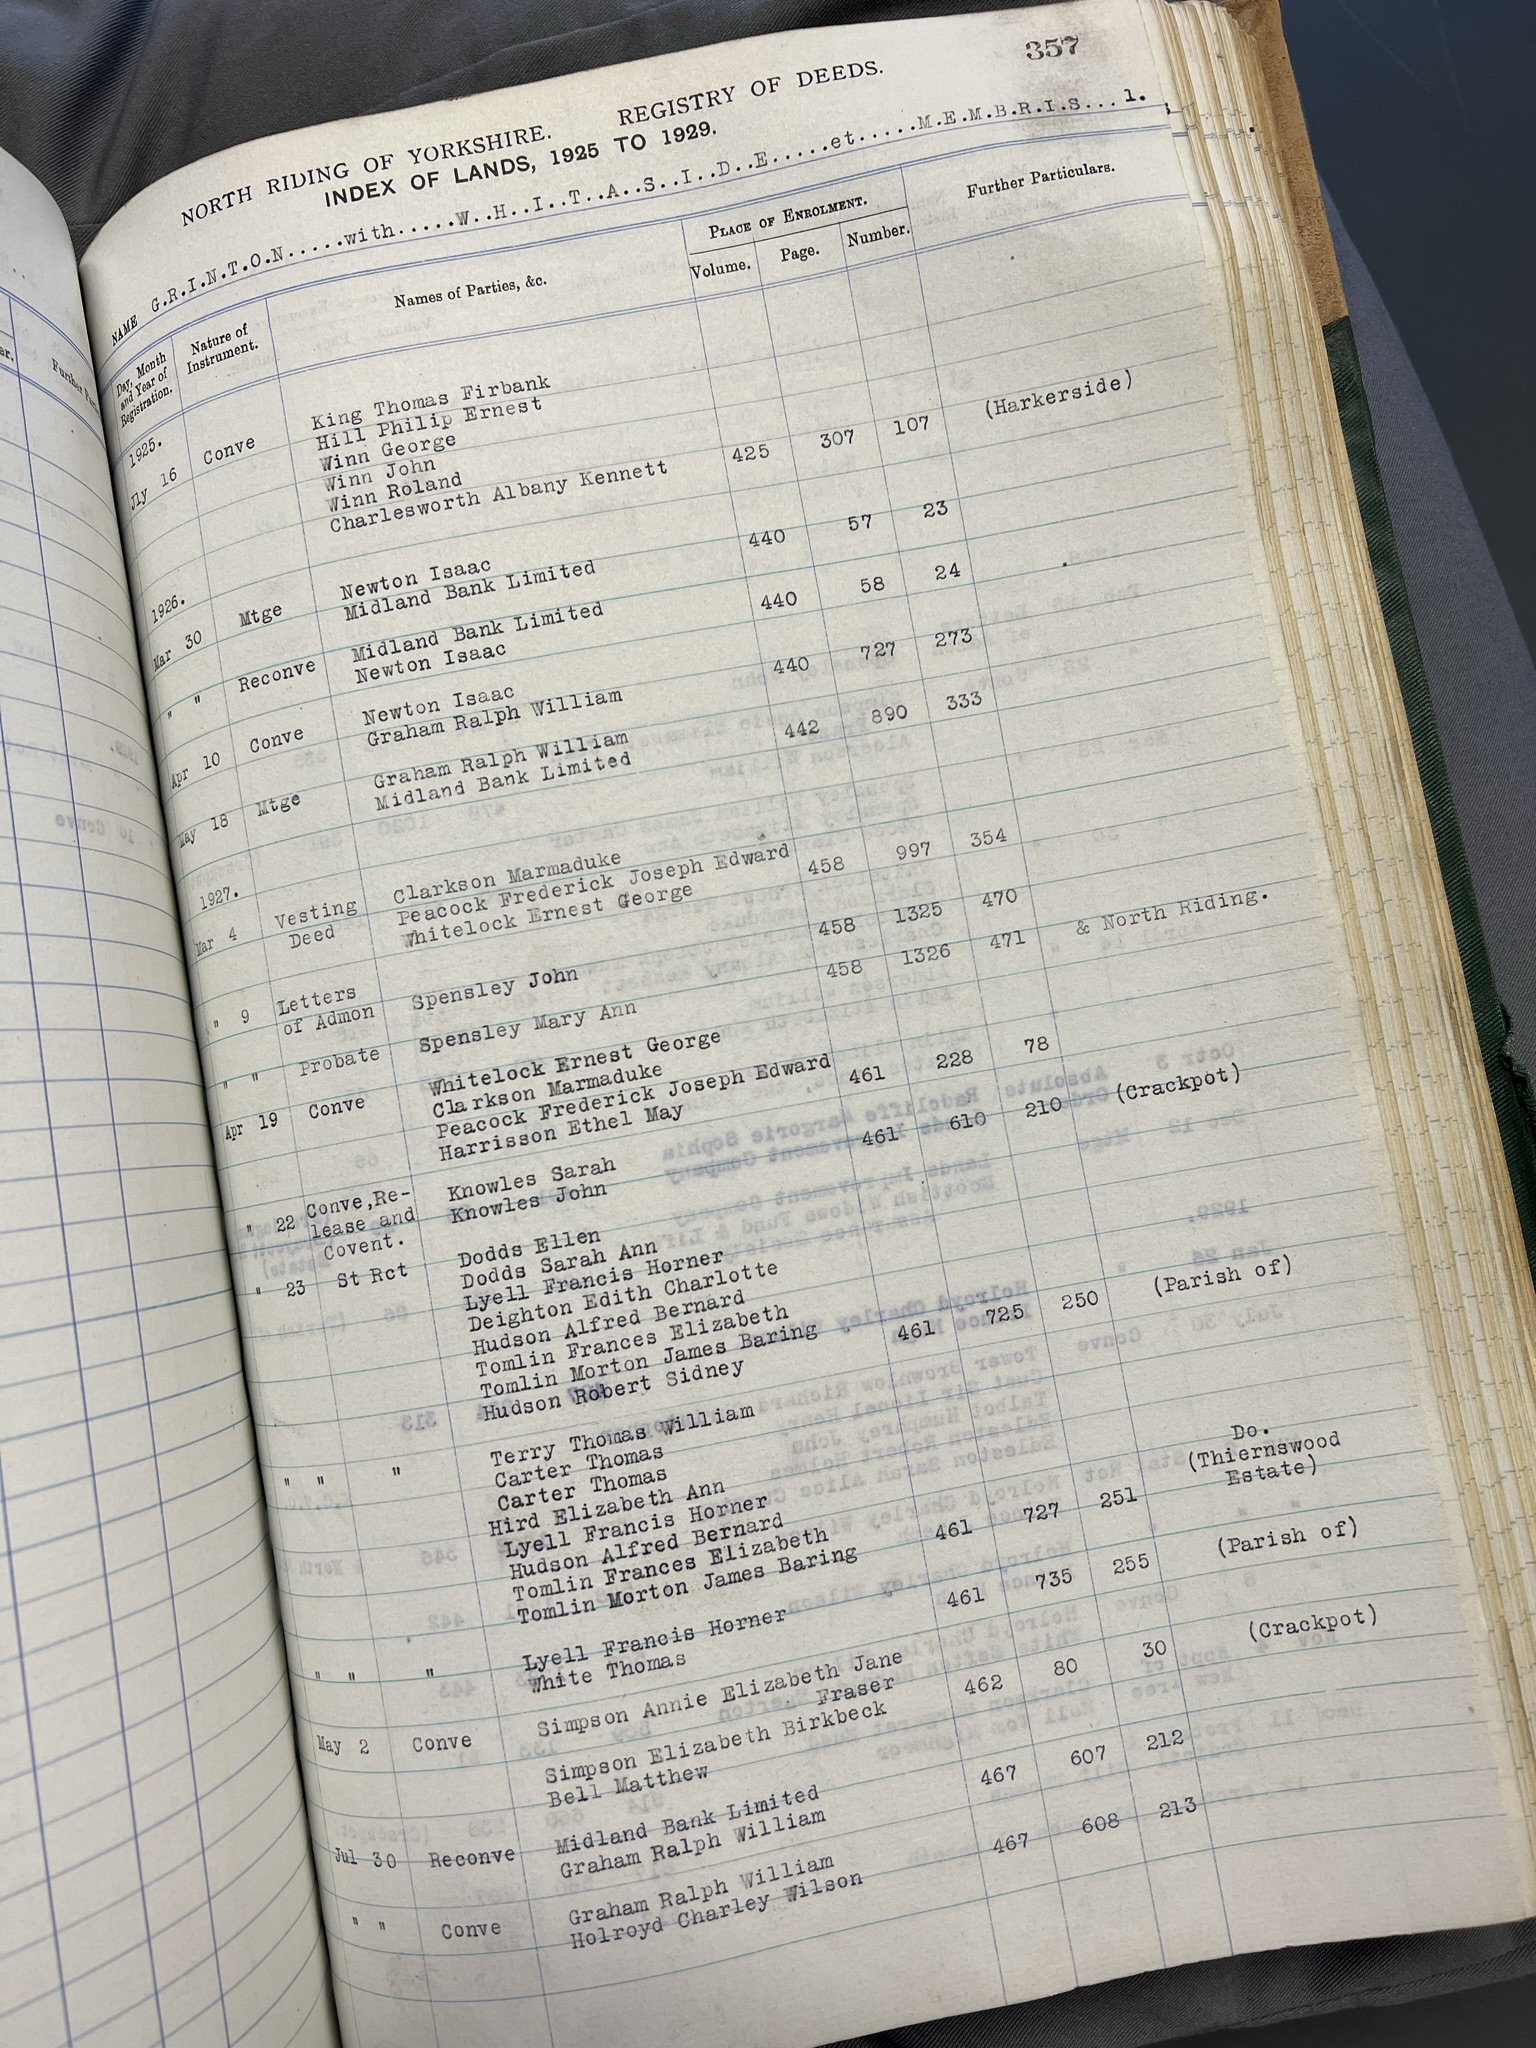 357
NORTH RIDING OF YORKSHIRE. REGISTRY OF DEEDS.
INDEX OF LANDS, 1925 TO 1929.
NAME G.R.I.N.T.O.N.....with.....W..H..I..T..A..S..I..D..E.....et.....M.E.M.B.R.I.S... 1.
Day, Month and Year of Registration. Nature of Instrument. Names of Parties, &c. PLACE OF ENROLMENT. Volume. Page. Number. Further Particulars.
1925.
Jly 16 Conve King Thomas Firbank
Hill Philip Ernest
Winn George
Winn John
Winn Roland
Charlesworth Albany Kennett 425 307 107 (Harkerside)
1926.
Mar 30 Mtge Newton Isaac
Midland Bank Limited 440 57 23
" " Reconve Midland Bank Limited
Newton Isaac 440 58 24
Apr 10 Conve Newton Isaac
Graham Ralph William 440 727 273
May 18 Mtge Graham Ralph William
Midland Bank Limited 442 890 333
1927.
Mar 4 Vesting Deed Clarkson Marmaduke
Peacock Frederick Joseph Edward
Whitelock Ernest George 458 997 354
" 9 Letters of Admon Spensley John 458 1325 470
" " Probate Spensley Mary Ann 458 1326 471 & North Riding.
Apr 19 Conve Whitelock Ernest George
Clarkson Marmaduke
Peacock Frederick Joseph Edward
Harrisson Ethel May 461 228 78
" 22 Conve,Re-
lease and
Covent. Knowles Sarah
Knowles John 461 610 210 (Crackpot)
" 23 St Rct Dodds Ellen
Dodds Sarah Ann
Lyell Francis Horner
Deighton Edith Charlotte
Hudson Alfred Bernard
Tomlin Frances Elizabeth
Tomlin Morton James Baring
Hudson Robert Sidney 461 725 250 (Parish of)
" " " Terry Thomas William
Carter Thomas
Carter Thomas
Hird Elizabeth Ann
Lyell Francis Horner
Hudson Alfred Bernard
Tomlin Frances Elizabeth
Tomlin Morton James Baring 461 727 251 Do.
(Thiernswood
Estate)
" " " Lyell Francis Horner
White Thomas 461 735 255 (Parish of)
May 2 Conve Simpson Annie Elizabeth Jane
Fraser
Simpson Elizabeth Birkbeck
Bell Matthew 462 80 30 (Crackpot)
Jul 30 Reconve Midland Bank Limited
Graham Ralph William 467 607 212
" " Conve Graham Ralph William
Holroyd Charley Wilson 467 608 213